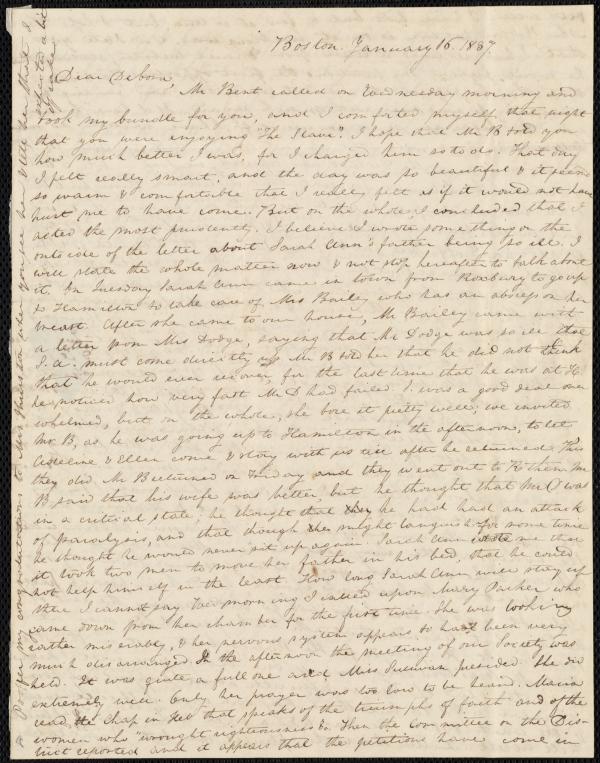 Boston. January 16. 1837.
Dear Debora,
Mr Bent called on Wednesday morning and
took my bundle for you, and I comforted myself that night
that you were enjoying "The Slave". I hope that Mr B told you
how much better I was, for I charged him so to do. That day
I felt really smart, and the day was so beautiful & it seemed
so warm & comfortable that I really felt as if it would not have
hurt me to have come. But on the whole, I concluded that I
acted the most prudently. I believe I wrote something on the
outside of the letter about Sarah Ann's father being so ill. I
will state the whole matter now & not stop hereafter to talk about
it. On Tuesday Sarah Ann came in town from Roxbury to go up
to Hamilton to take care of Mrs Bailey who has an abscess on her
breast. After she came to our house, Mr Bailey came with
a letter from Mrs Dodge, saying that Mr Dodge was so ill that
S. A. must come directly up. Mr B told her that he did not think
that he would ever recover, for the last time that he was at H.
he noticed how very fast Mr D had failed. S. was a good deal over
whelmed, but on the whole, she bore it pretty well, we invited
Mr B, as he was going up to Hamilton in the afternoon, to let
Adeline & Ellen come & stay with us till after he returned. This
they did. Mr B returned on Friday and they went out to R. then. Mr
B said that his wife was better, but he thought that Mr D was
in a critical state; he thought that he had had an attack
of paralysis, and that though he might languish for some time
he thought he would never sit up again. Sarah Ann wrote me that
it took two men to move her father in his bed, that he could
not help himself in the least. How long Sarah Ann will stay up
there I cannot say. Wed morning I called upon Mary Parker who
came down from her chamber for the first time. She was looking
rather miserably, & her nervous system appears to have been very
much disarranged. In the afternoon the meeting of our Society was
held. It was quite a full one and Miss Sullivan presided. She did
extremely well. Only her prayer was too low to be heard. Maria
read the Chap in Heb that speaks of the triumphs of faith and of the
women who "wrought righteousness" &c. Then the committee on the Dis-
trict reported and it appears that the petitions have come in
Proffer my congratulations to Mrs when you see her & tell her that I
expected a bit
of cake